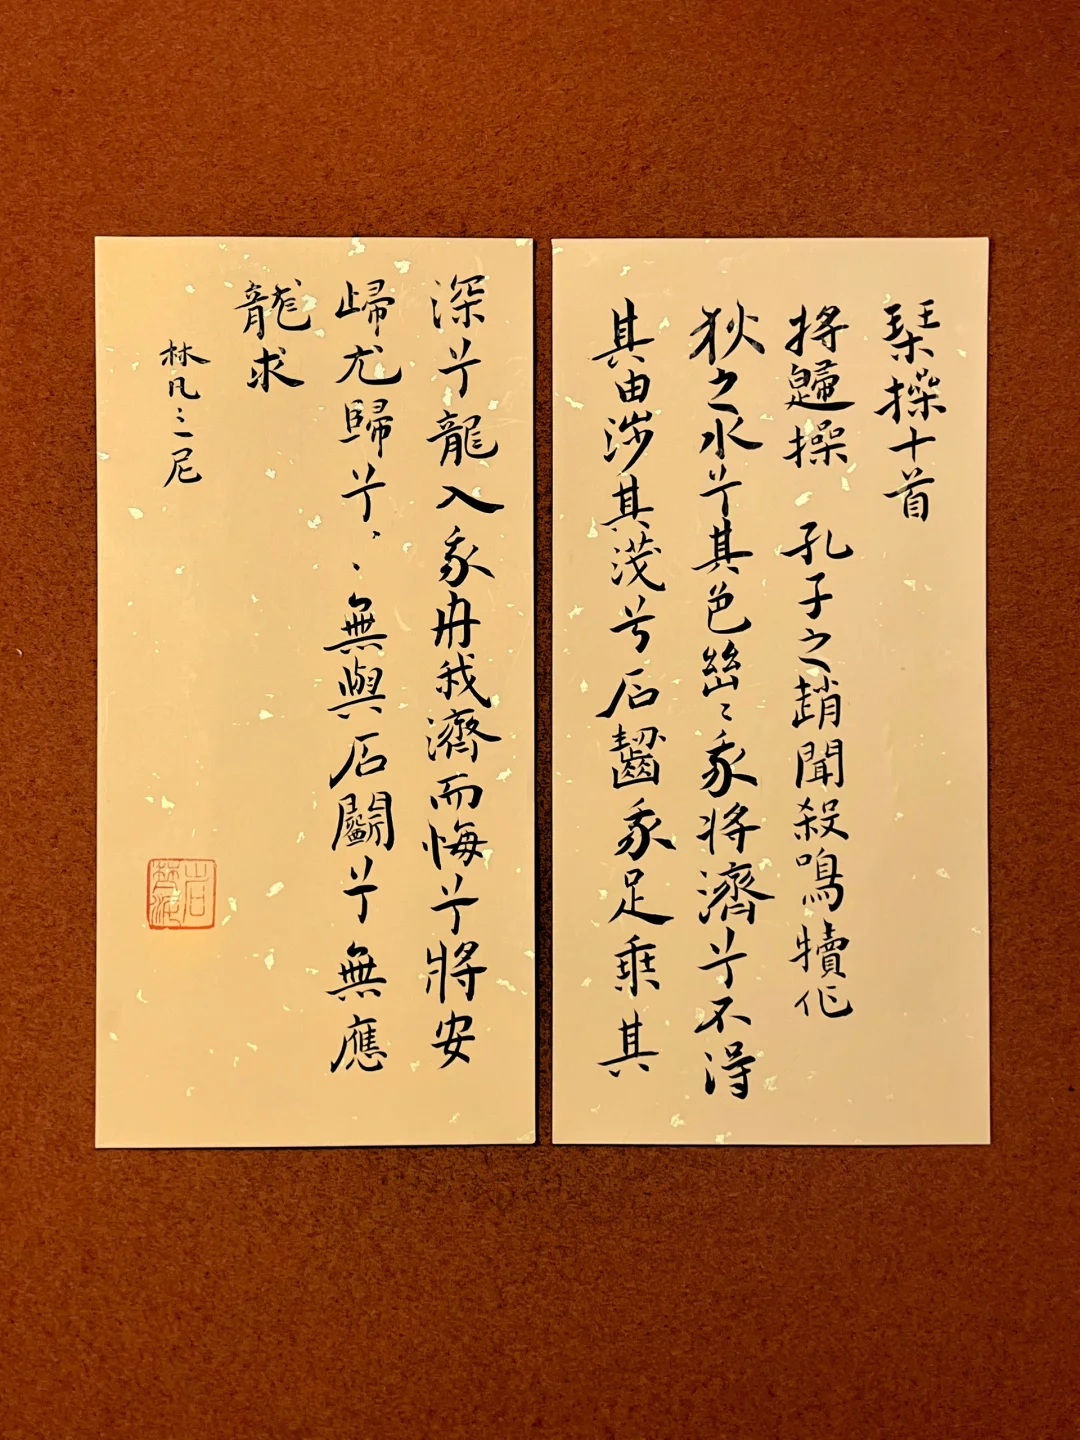 琹操十首
将歸操 孔子之趙聞殺鳴犢作
狄之水兮其色幽〻我将濟兮不得
其由涉其淺兮石齧我足乗其
深兮龍入我舟我濟而悔兮將安
歸尤歸兮〻〻無與石鬭兮無應
龍求
林凡